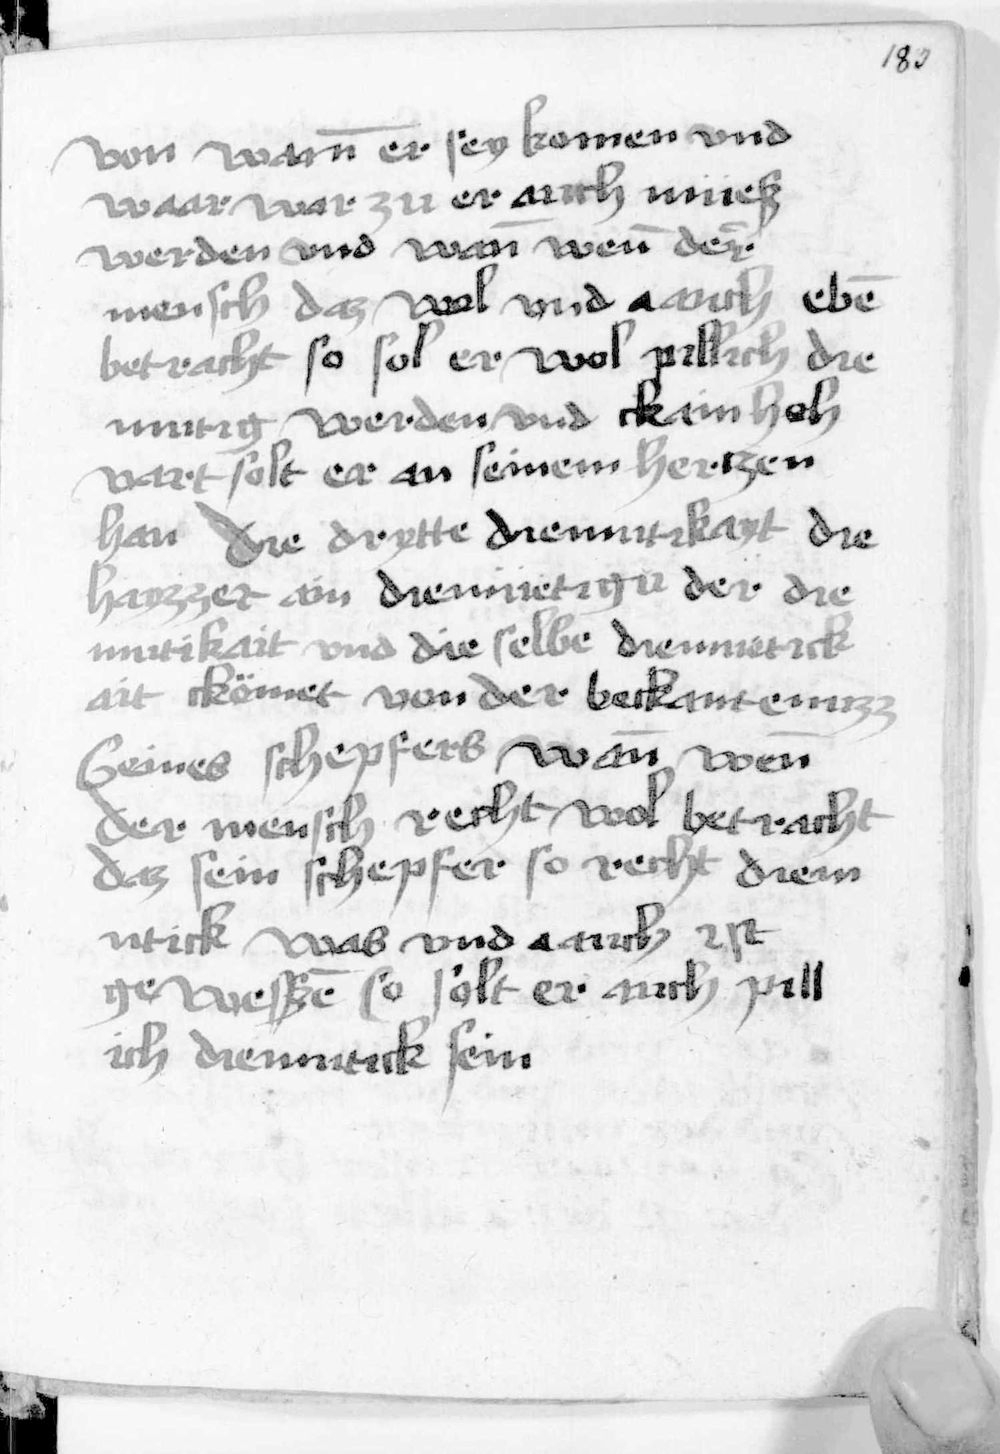 180
von wan̄ er sey komen vnd
waar war zu er auch müeß
werden vnd wan̄ wen̄ der
mensch daz wol vnd aauch ebē
betracht so sol er wol pillich die
mutig werden vnd ckain hoh
vart solt er an seinem hertzen
han Die drytte diemutikayt die
hayzzet ain diemüetigü der die
mutikait vnd die selbē diemuetick
ait ckömet von der beckantenuzz
Seines schepfers wan̄ wen̄
der mensch recht wol betracht
daz sein schepfer so recht diem
utick was vnd aauch ist
gewessē so sölt er auch pill
ich diemutick sein